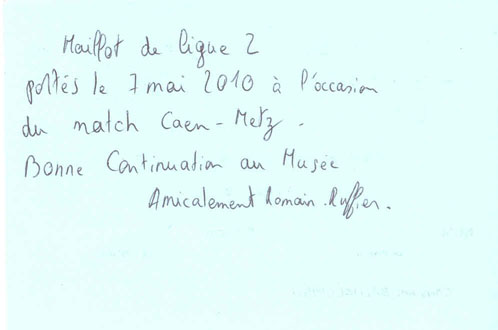 Maillot de ligue 2
portés le 7 mai 2010 à l'occasion
du match Caen - Metz.
Bonne Continuation au Musée
Amicalement Romain.Ruffier.